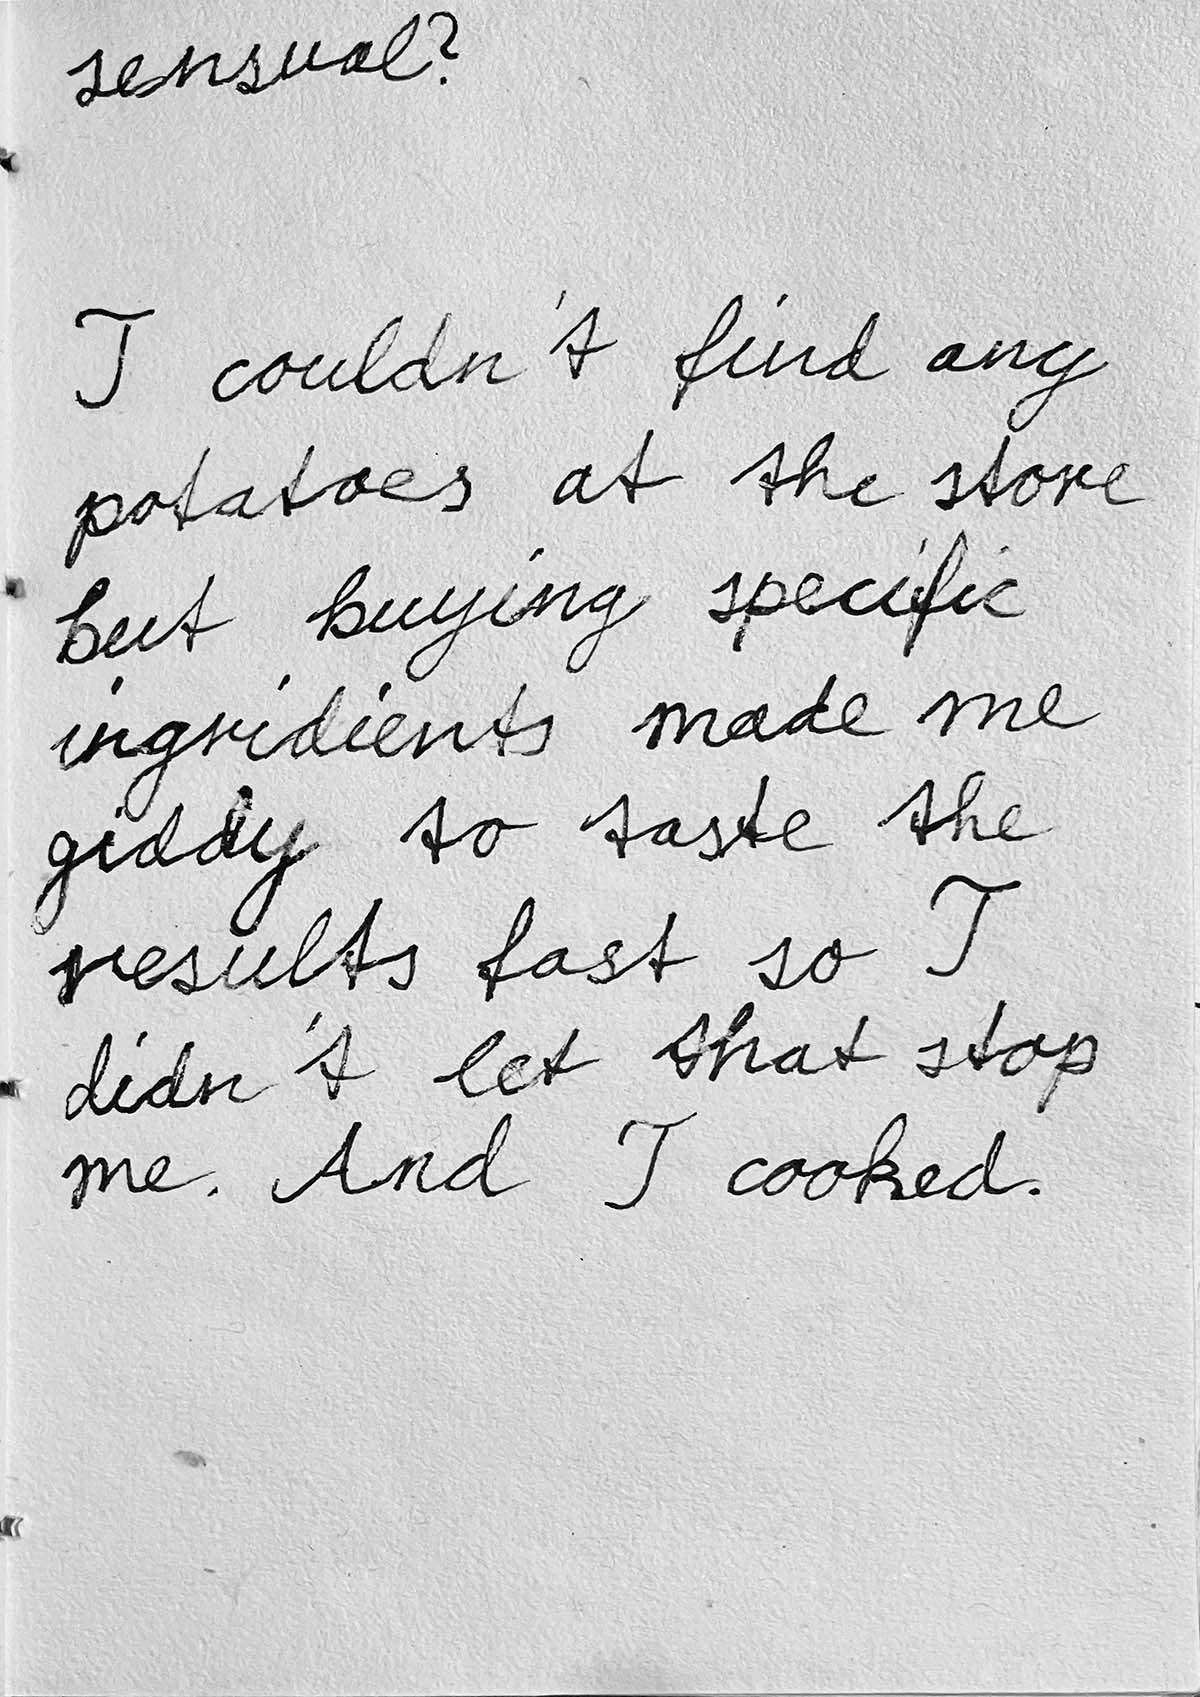 sensual?
I couldn't find any
potatoes at the store
but buying specific
ingridients made me
giddy to taste the
results fast so I
didn't let that stop
me. And I cooked.